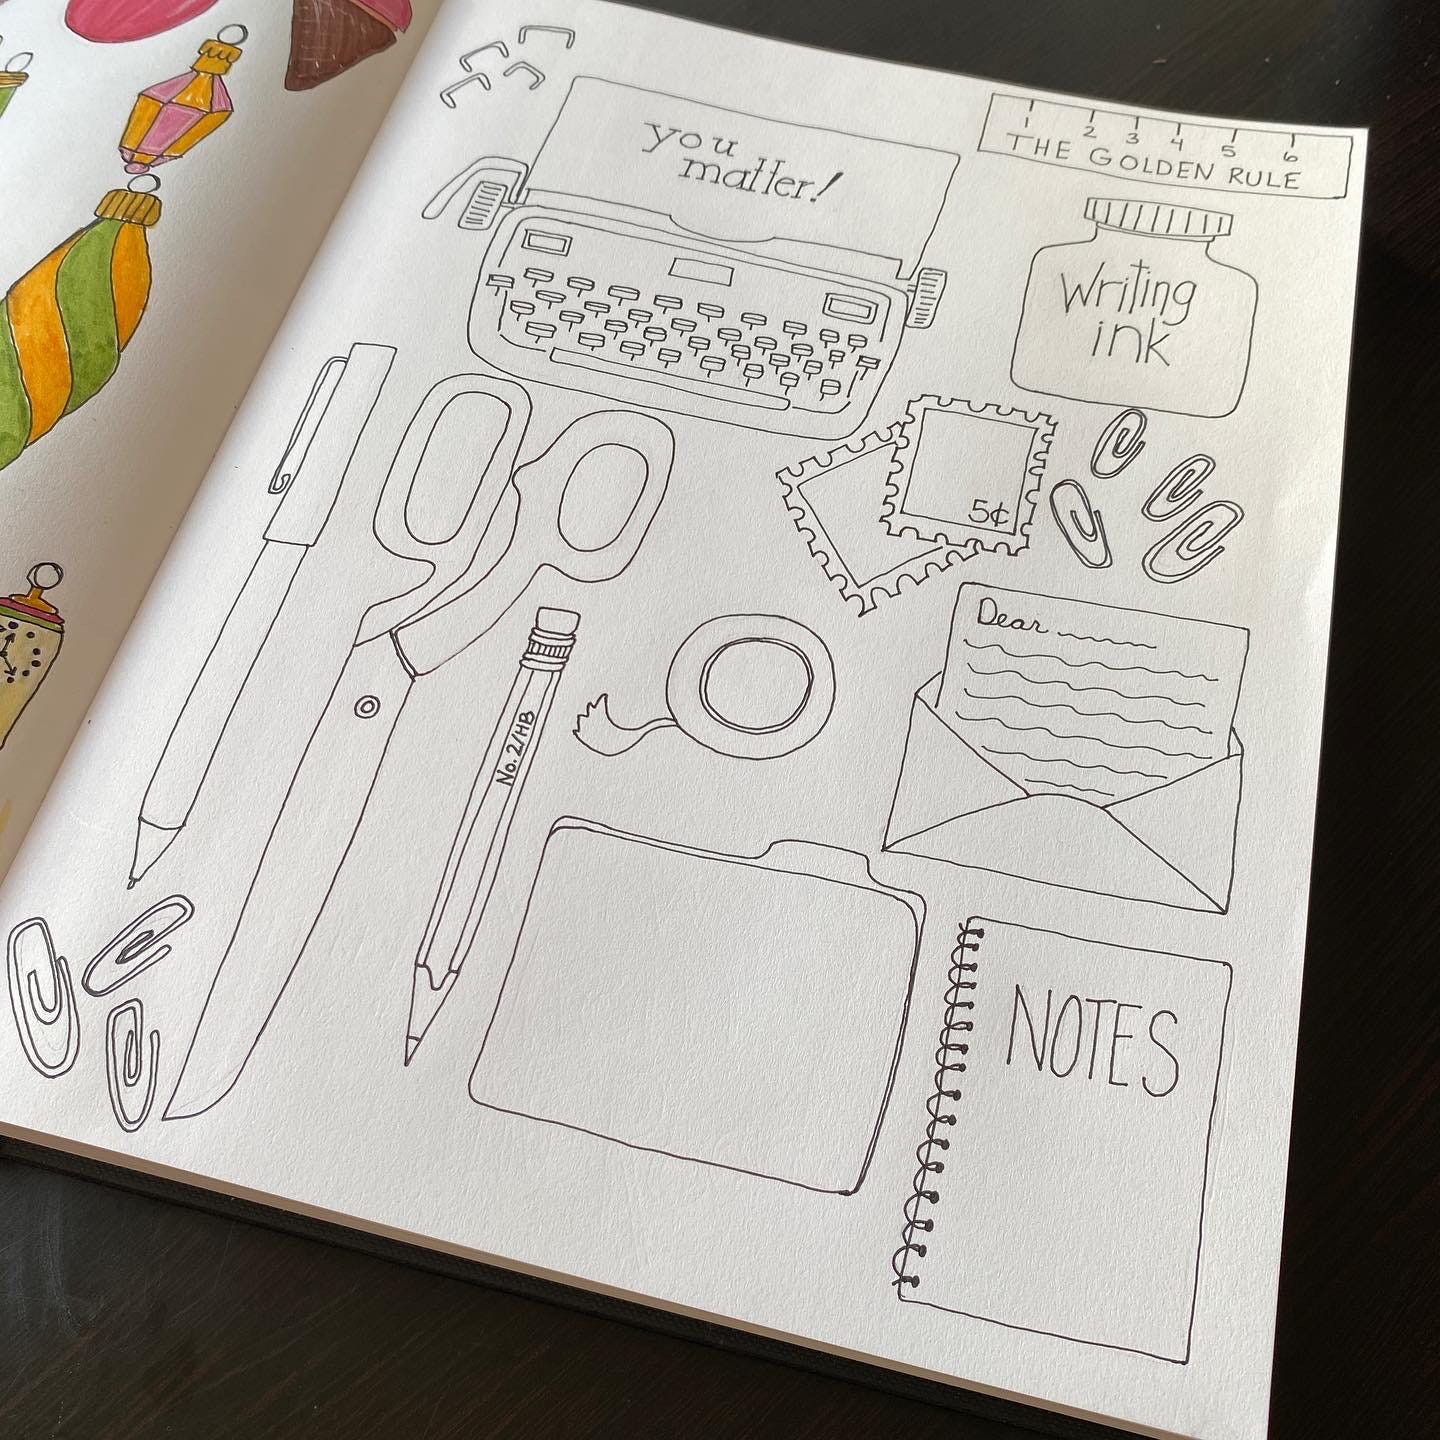 you
matter!
1 2 3 4 5 6
THE GOLDEN RULE
Writing
ink
5¢
Dear
No. 2/HB
NOTES